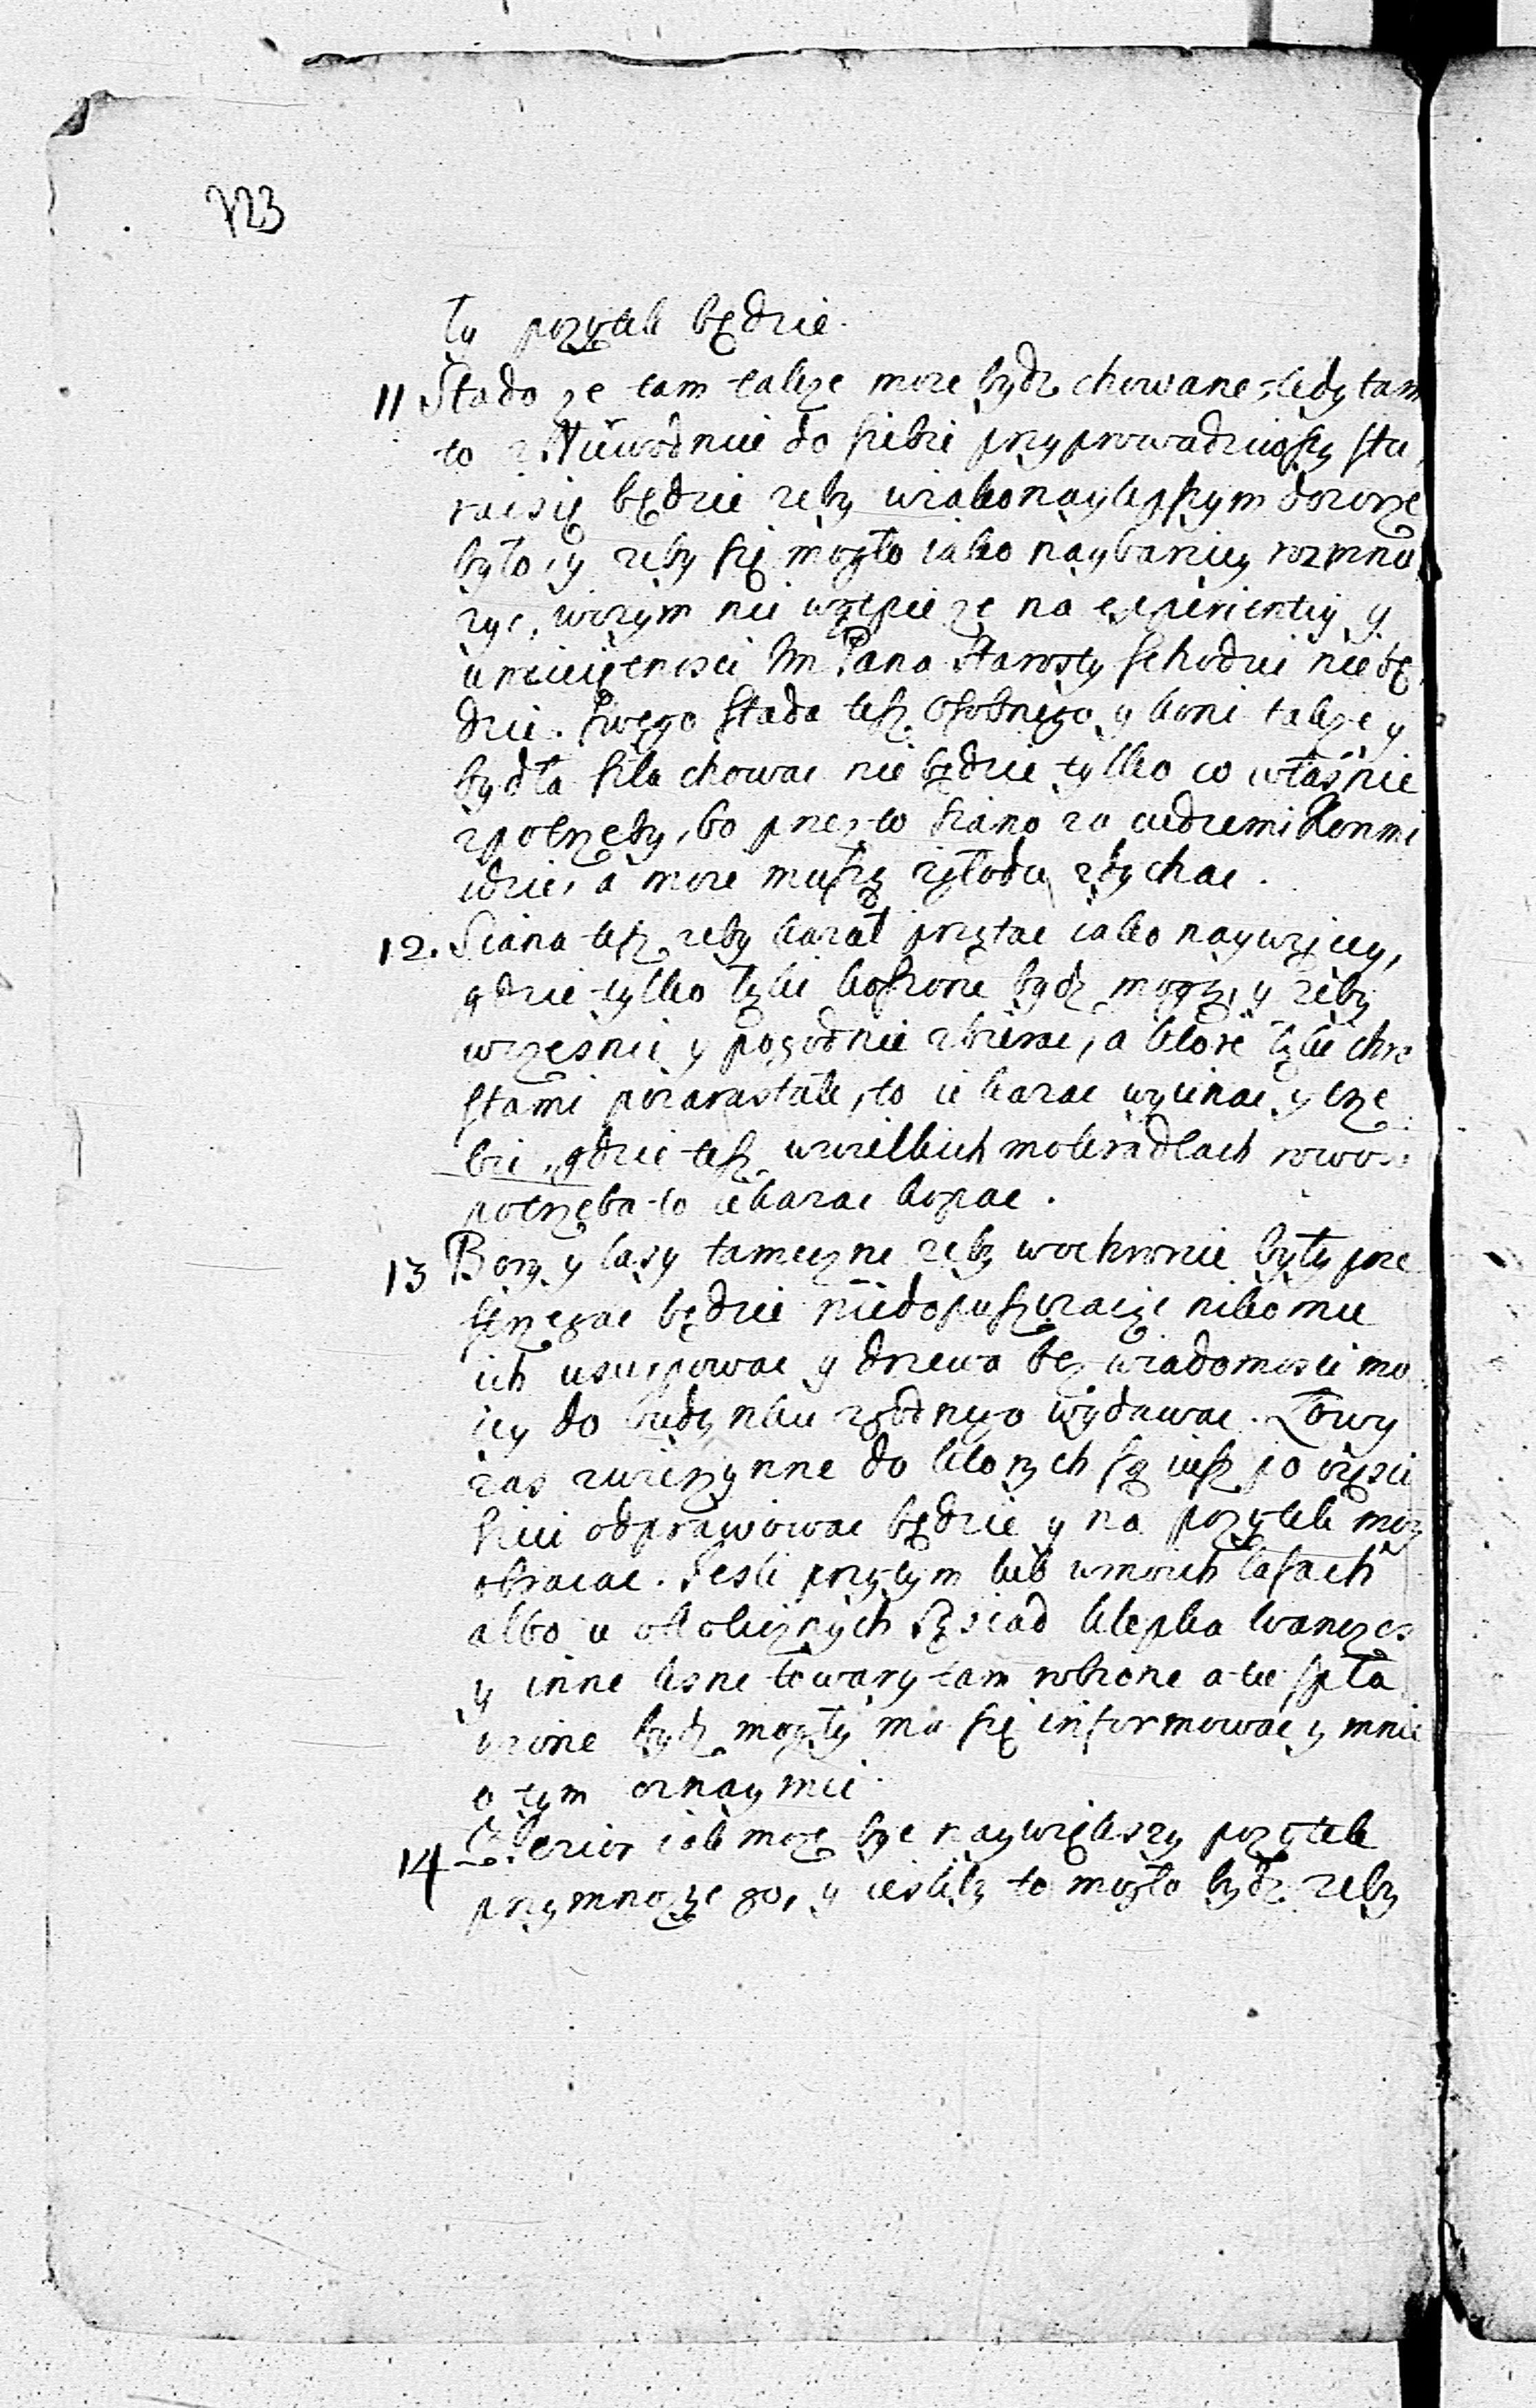 723
ły pozytek będzie.
11 Stado że tam także może bydz chowane, tedy tam
to z Niewodnice do siebie przyprowadziwszy sta,
rac się będzie zeby wiakonaylepszym dozorze
było, y zeby się mogło iako naybarziey rozmno
zyc, wczym nie wątpię że na experientiy y
umieiętnosci Jm Pana Starosty schodzic niebę,
dzie. Swego stada tesz osobnego y koni także y
bydła siła chowac nie będzie tylko co własnie
zpotrzeby, bo przez to siano za cudzemi konmi
idzie, a moie muszą zgłodu zdychac.
12. Siana tesz zeby kazał przątac iako naywięcy,
gdzie tylko łąki koszone bydz mogą, y zeby
wczesnie y pogodnie zbierac, a ktore łąki chro
stami pozarastałe, to ie kazac wycinac y trze
bic, gdzie tesz wwielkich mokradłach rowow
potrzeba to ie kazac kopac.
13 Bory y lasy tameczne zeby wochronie były prze
strzegac będzie niedopuszczaiąc nikomu
ich usurpowac y drzewa bez wiadomosci mo
iey do budynku zgodnego wydawac. Łowy
zas zwierzynne do ktorych są iusz po części
sieci odprawowac będzie y na pozytek moy
obracac. Jesli przytym lub wmoich lasach
albo u okolicznych Sąsiad klepka wanczos
y inne lesne towary tam robione a tu spła
wione bydz mogły ma się informowac y mnie
o tym oznaymic.
14 Jezior iak moze byc naywiększy pozytek
przymnozyc go, y iesliby to mogło bydz zeby